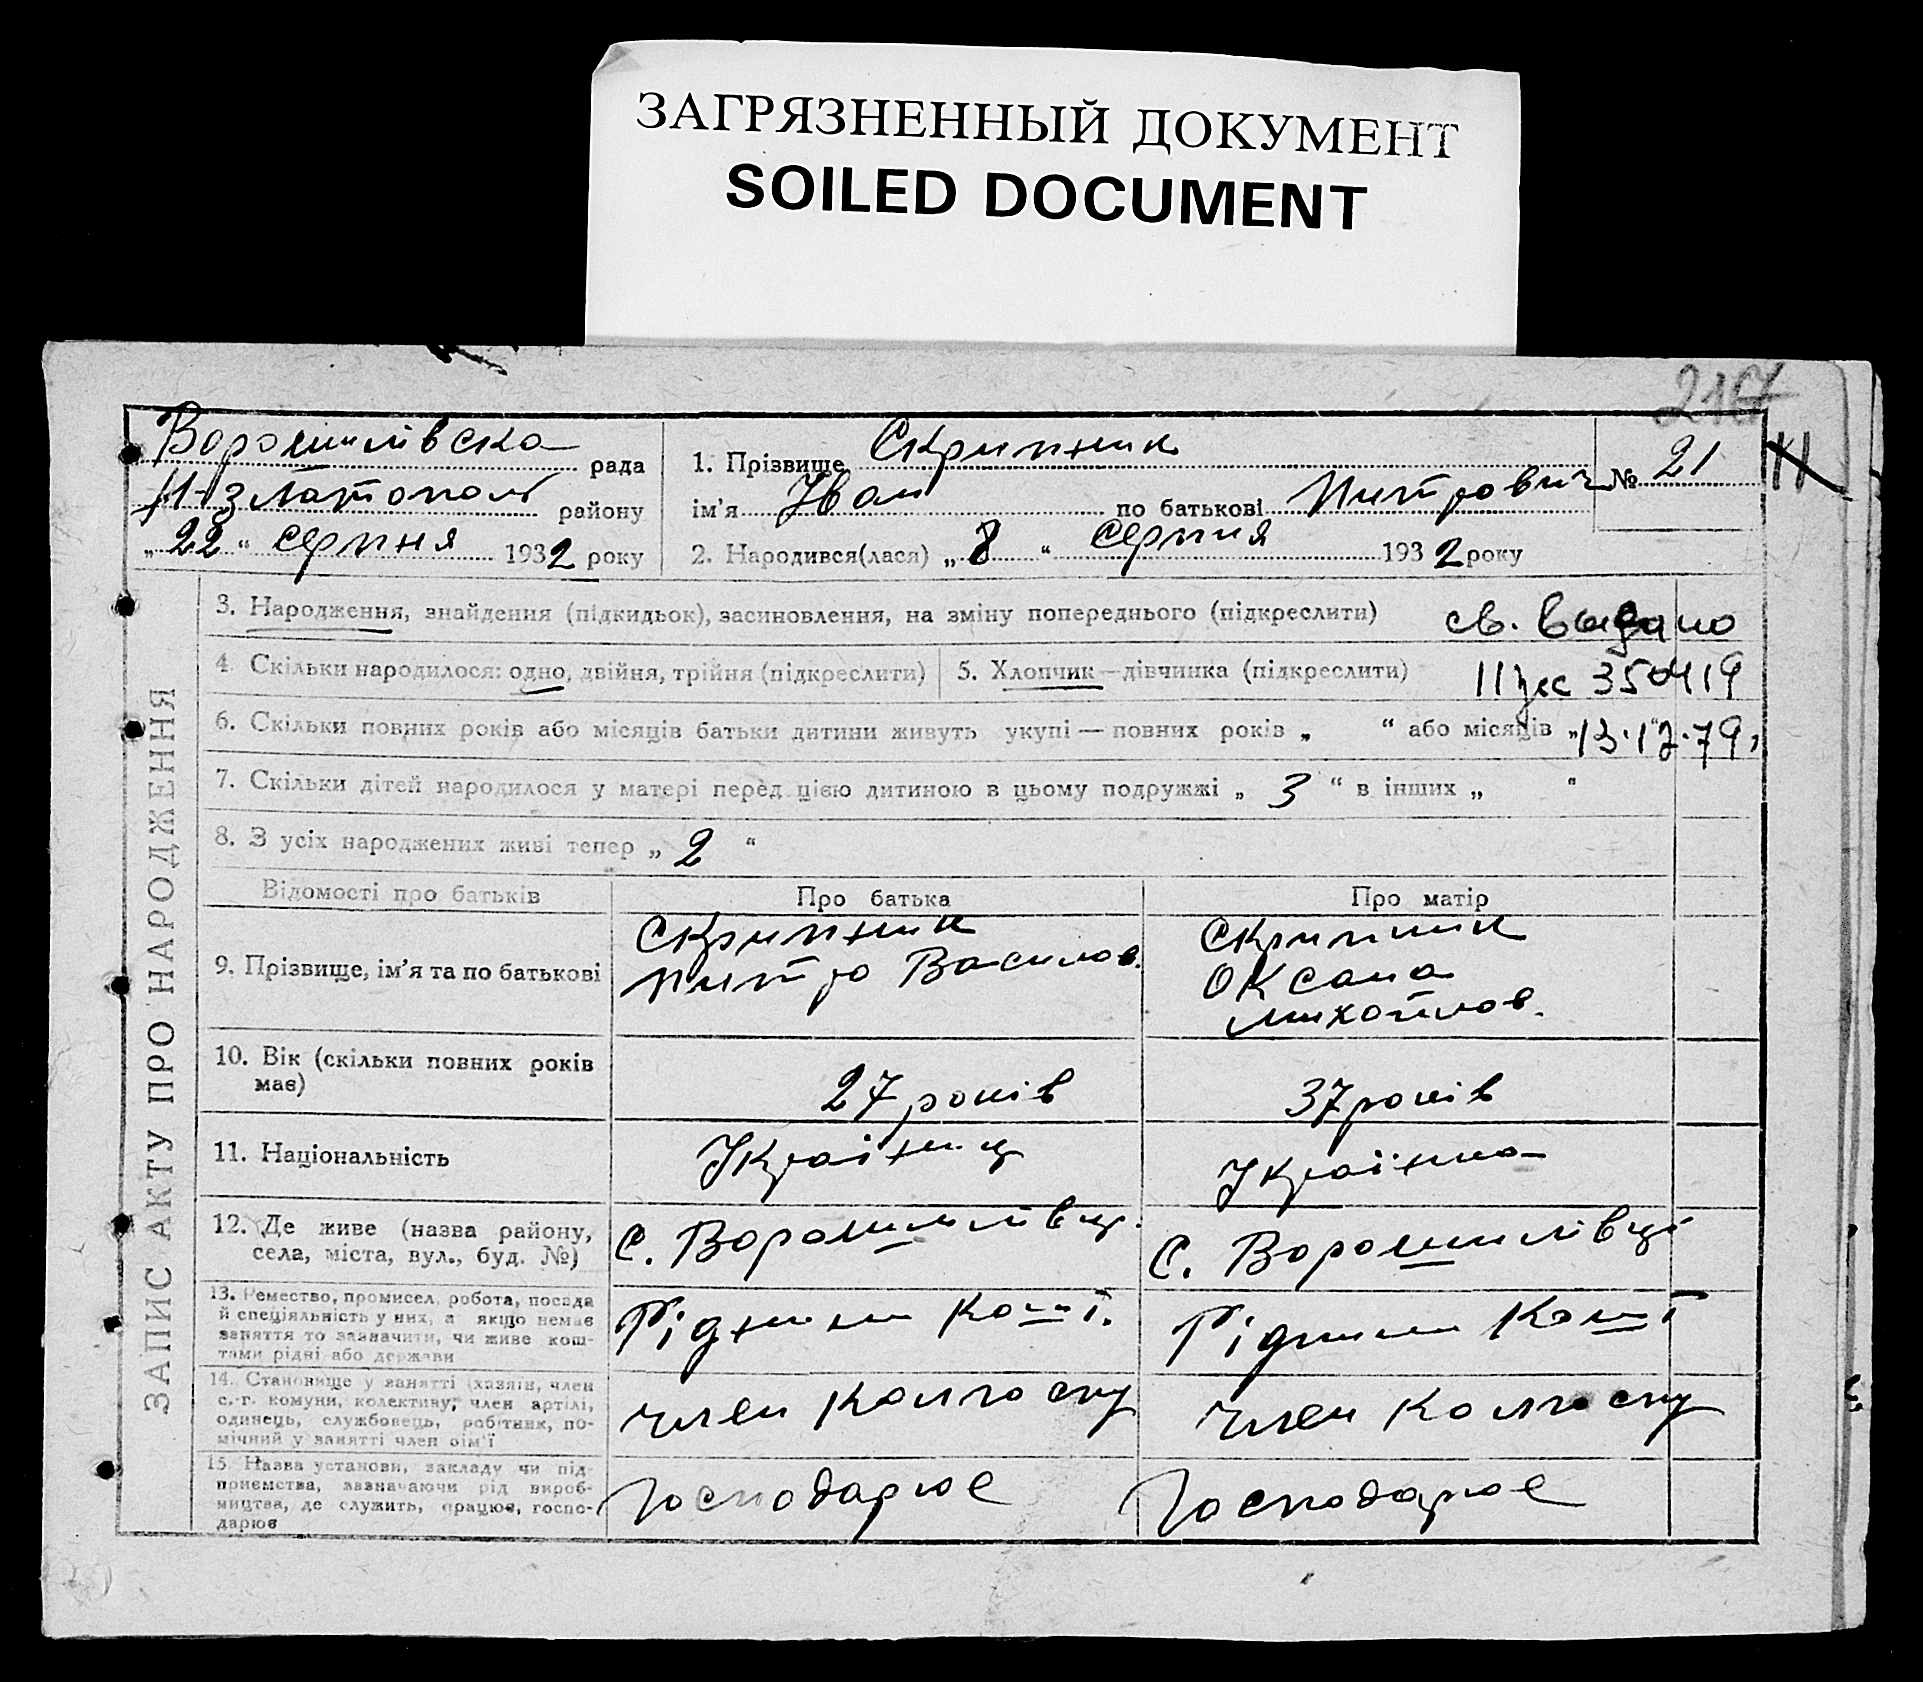 ЗАГРЯЗНЕННЫЙ ДОКУМЕНТ
SOILED DOCUMENT
217
Ворошилівська рада
Н-Златопол району
„22“ серпня 1932 року
1. Прізвище Скрипник
ім’я Іван по батькові Митрович
2. Народився(лася) „8“ серпня 1932 року
№ 21
11
ЗАПИС АКТУ ПРО НАРОДЖЕННЯ
3. Народження, знайдення (підкидьок), засиновлення, на зміну попереднього (підкреслити) св. выдано
4. Скільки народилося: одно, двійня, трійня (підкреслити) 5. Хлопчик—дівчинка (підкреслити) 350419
6. Скільки повних років або місяців батьки дитини живуть укупі — повних років „ “ або місяців „ “ 13.12.79
7. Скільки дітей народилося у матері перед цією дитиною в цьому подружжі „ 3 “ в інших „ “
8. З усіх народжених живі тепер „ 2 “
Відомості про батьків Про батька Про матір
9. Прізвище, ім’я та по батькові
Скрипник
Митро Василов.
Скрипник
Оксана
Михайлов.
10. Вік (скільки повних років
має)
27 років
37 років
11. Національність
Українц
Українка
12. Де живе (назва району,
села, міста, вул., буд. №)
с. Ворошилівці
с. Ворошилівці
13. Ремество, промисел, робота, посада
й спеціяльність у них, а якщо немає
заняття то зазначити, чи живе кош-
тами рідні або держави
Рідними кошт.
Рідними кошт
14. Становище у занятті (хазяїн, член
с.-г. комуни, колективу, член артілі,
одинець, службовець, робітник, по-
мічний у занятті член сім’ї
член колгоспу
член колгоспу
15. Назва установи, закладу чи під-
приємства, зазначаючи рід вироб-
ництва, де служить, працює, госпо-
дарює
Господарює
Господарює